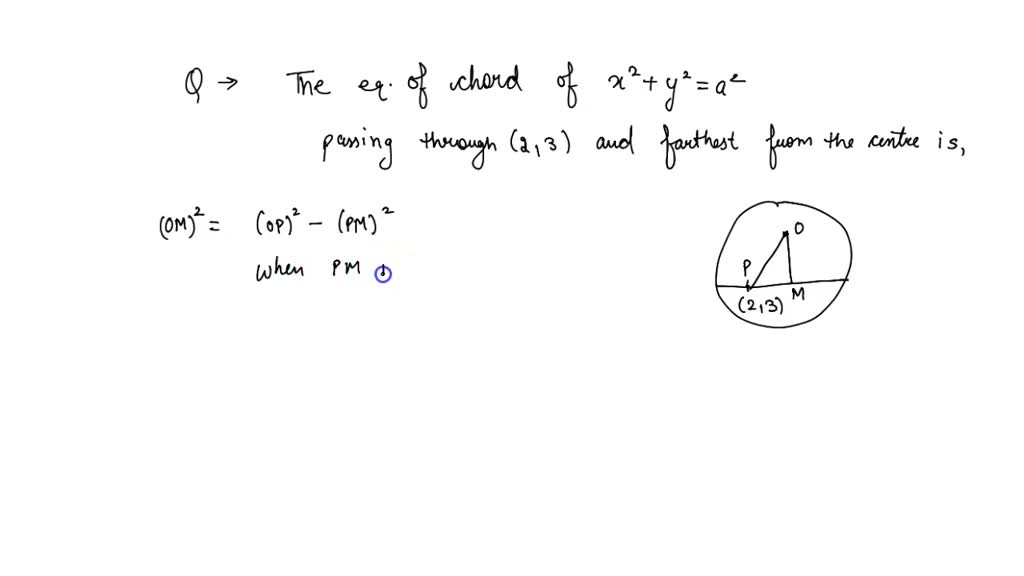 Q → The eq. of chord of x² + y² = a²
passing through (2,3) and farthest from the centre is,
(OM)² = (OP)² - (PM)²
when PM
O
P
M
(2,3)